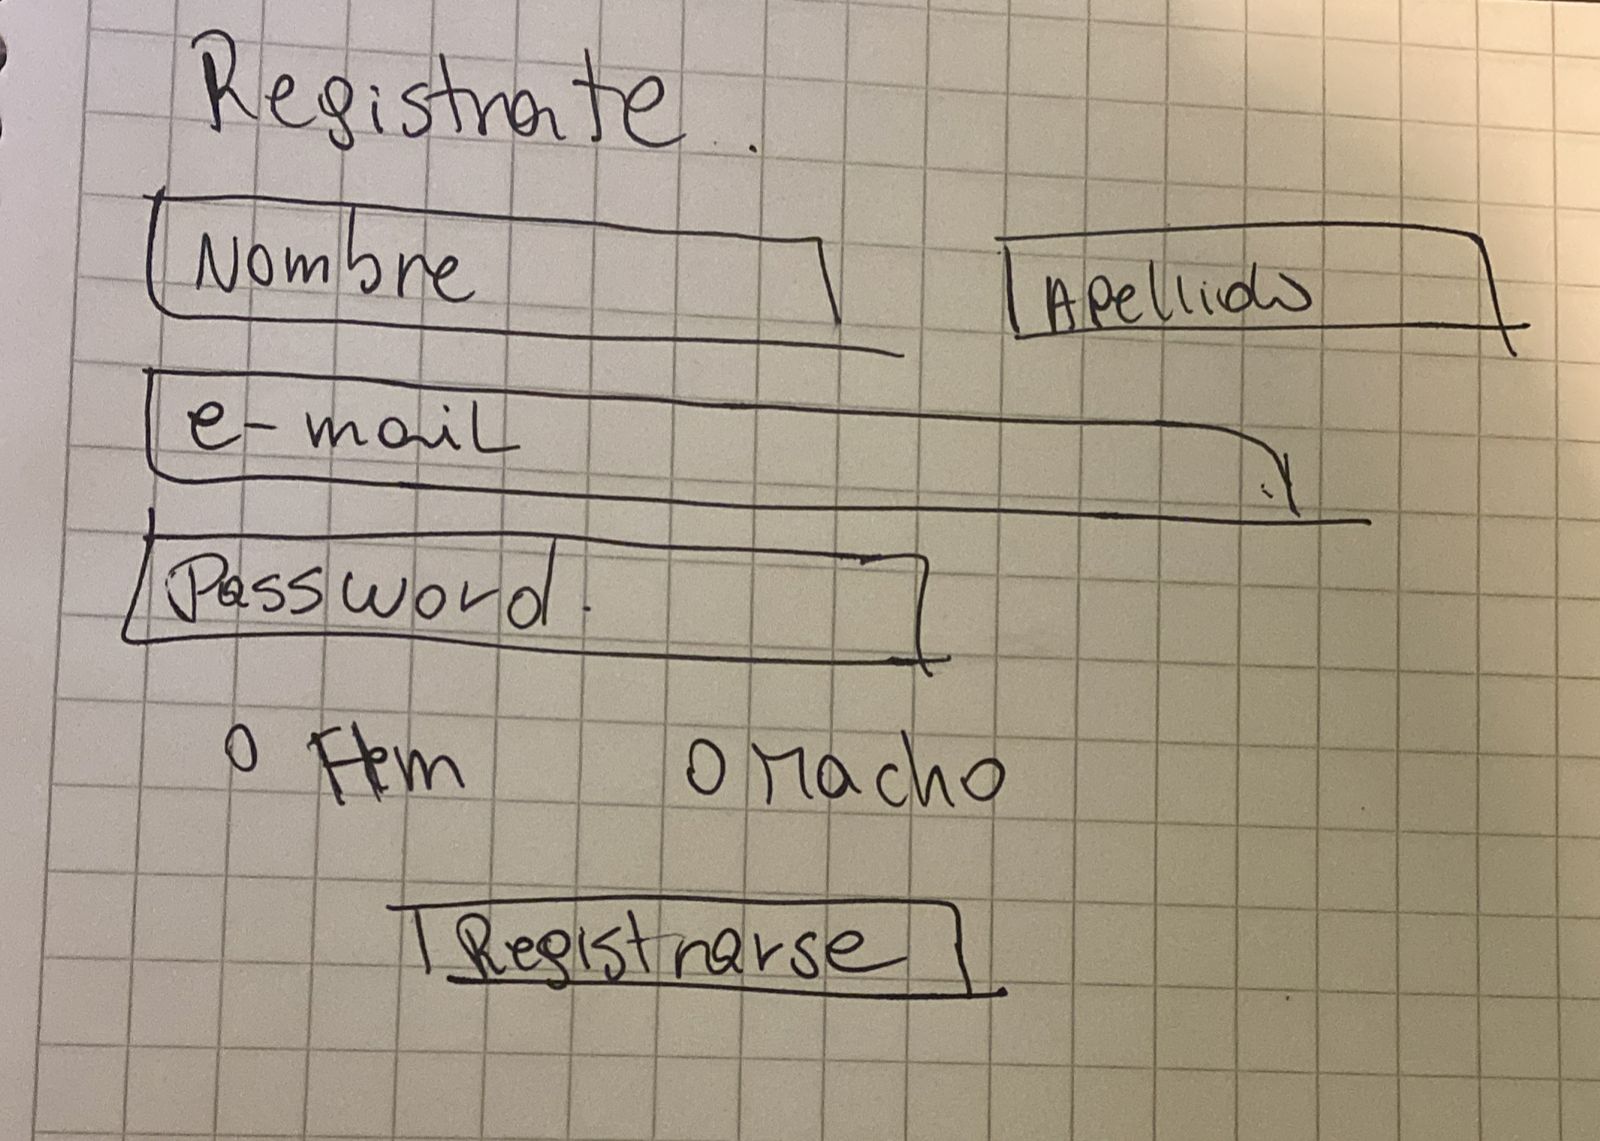 Registrate.
Nombre Apellido
e-mail
Password.
O Fem O Macho
Registrarse